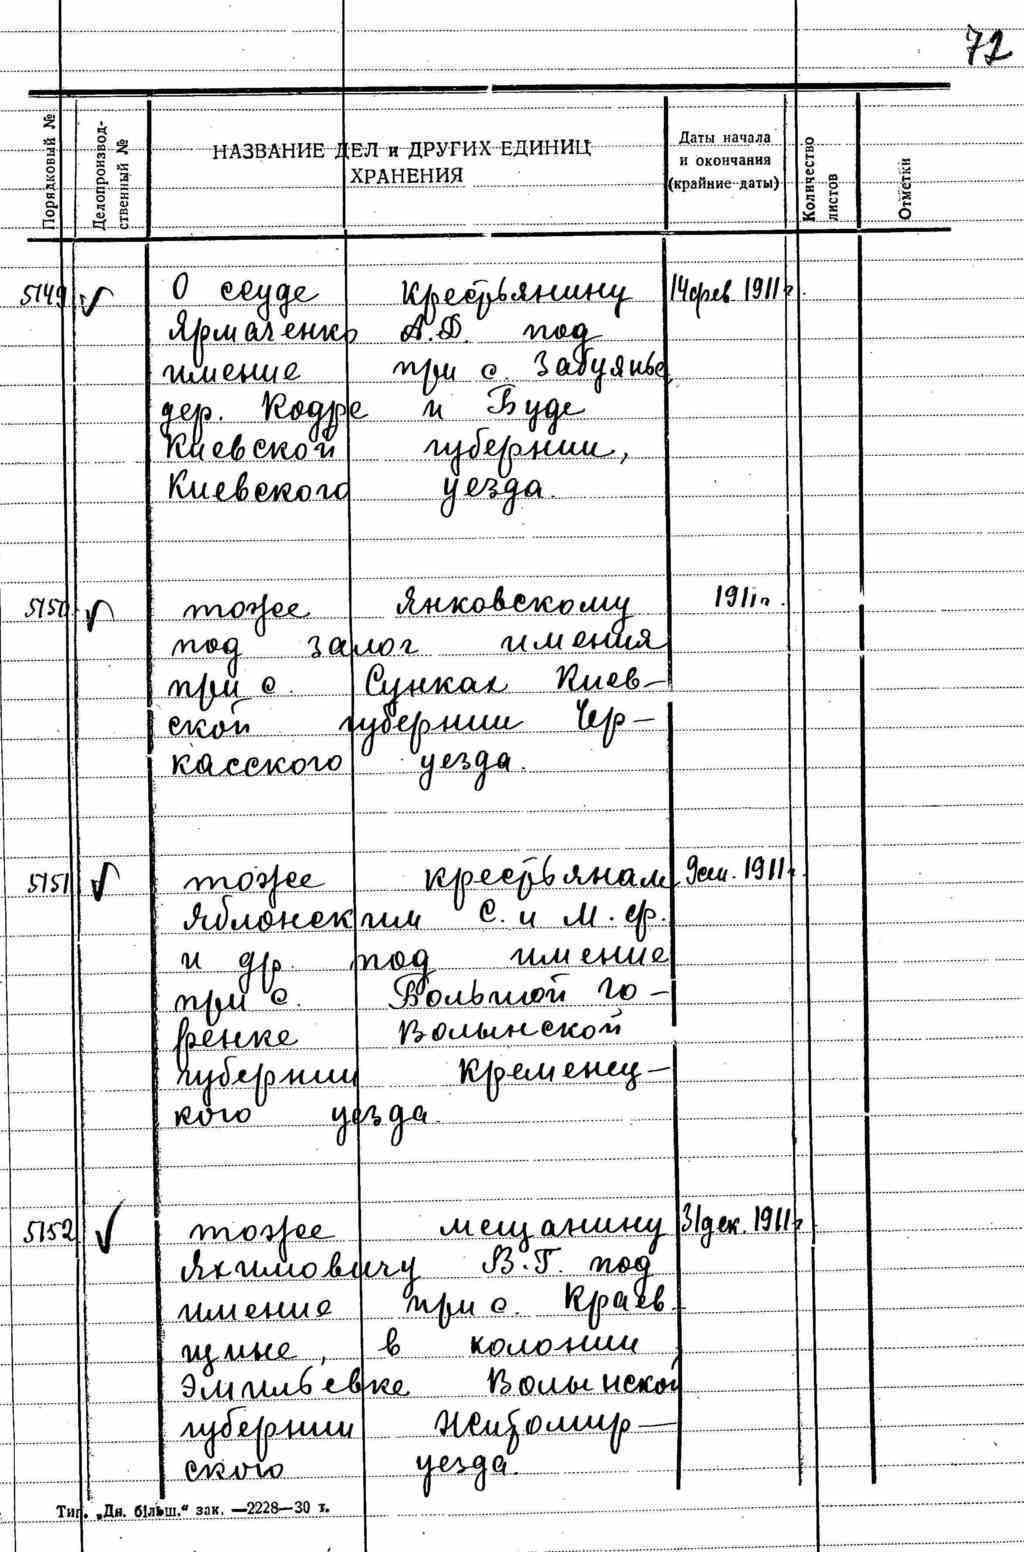 72
Порядковый №
Делопроизвод-
ственный №
НАЗВАНИЕ ДЕЛ и ДРУГИХ ЕДИНИЦ
ХРАНЕНИЯ
Даты начала
и окончания
(крайние даты)
Количество
листов
Отметки
5149 О ссуде крестьянину 14 фев 1911 г.
Ярмаченко А.Д. под
имение при с. Забуянье
дер. Кодре и Буде
Киевской губернии,
Киевского уезда.
5150 тоже Янковскому 1911 г.
под залог имения
при с. Сунках Киев-
ской губернии Чер-
касского уезда.
5151 тоже крестьянам 1911 г.
Яблонским С. и М. Ф.
и др. под имение
при с. Большой Го-
ренке Волынской
губернии Кременец-
кого уезда.
5152 тоже мещанину 31 дек. 1911 г.
Яхимовичу В.Г. под
имение при с. Краев-
щине, в колонии
Эмильевке Волынской
губернии Житомир-
ского уезда.
Тип. „Дн. більш.“ зак. —2228—30 т.